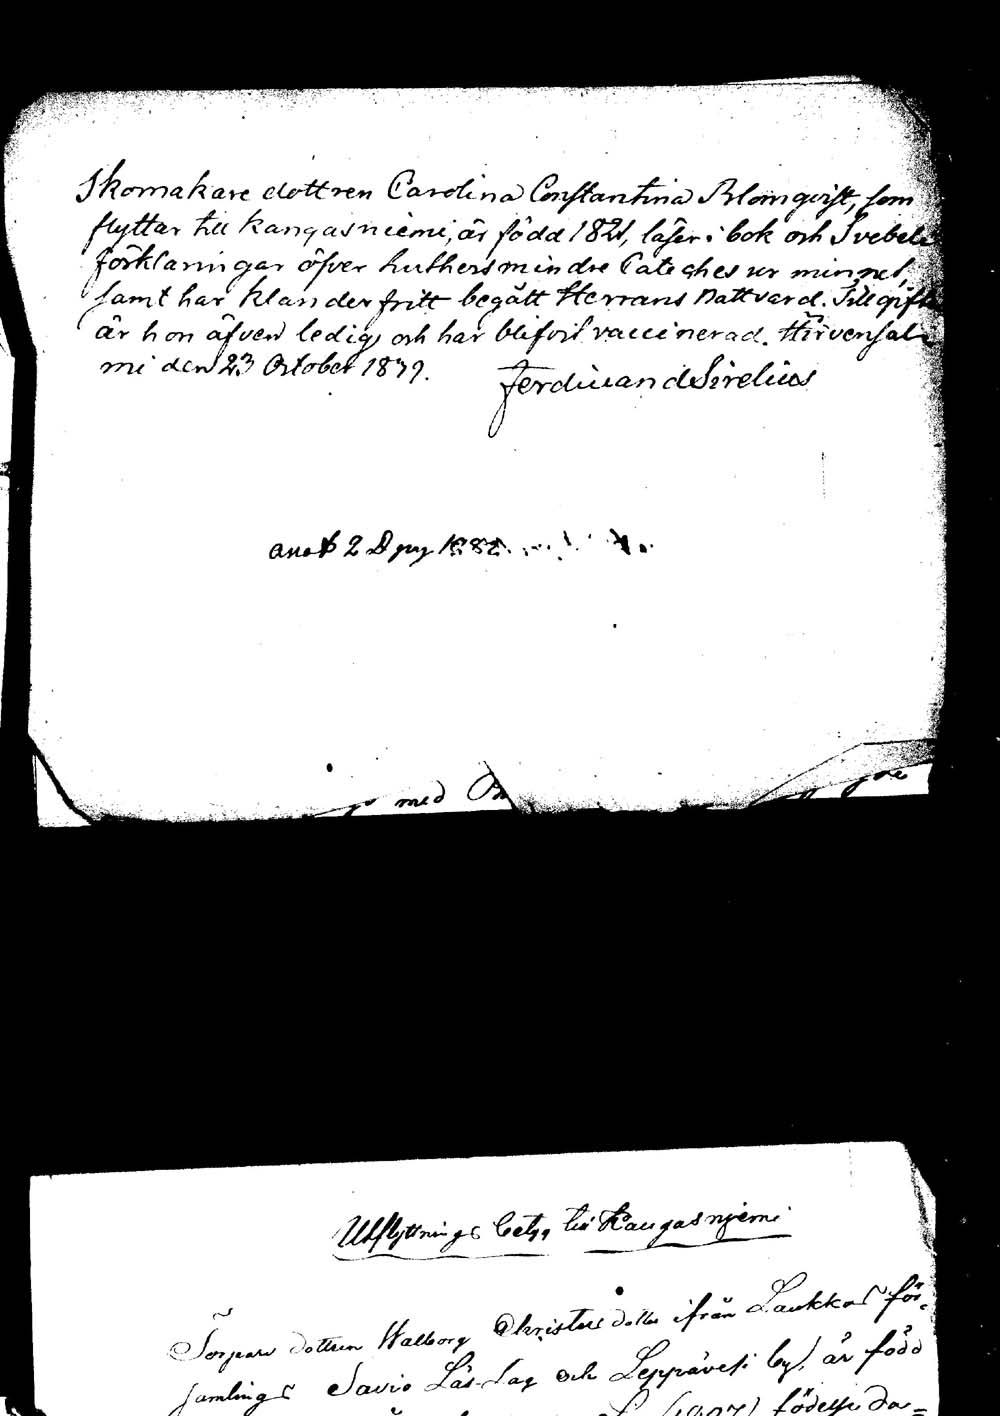 Skomakare dottren Carolina Constantina Blomqvist, som
flyttar till Kangasniemi, är född 1821, läser i bok och Svebeli
förklaringar öfver Luthers mindre Cateches ur minnet,
samt har klanderfritt begått Herrans Nattvard. Till gifte
är hon äfven ledig, och har blifvit vaccinerad. Hirvensal-
mi den 23 October 1879.
Ferdinand Sirelius
2 1882
med
Utflyttnings betyg till Kangasniemi
Torpare dottren Walborg Christersdotter ifrån Laukkas för-
samlings Savio Läs-lag och Leppävesi by, är född
födelse da=